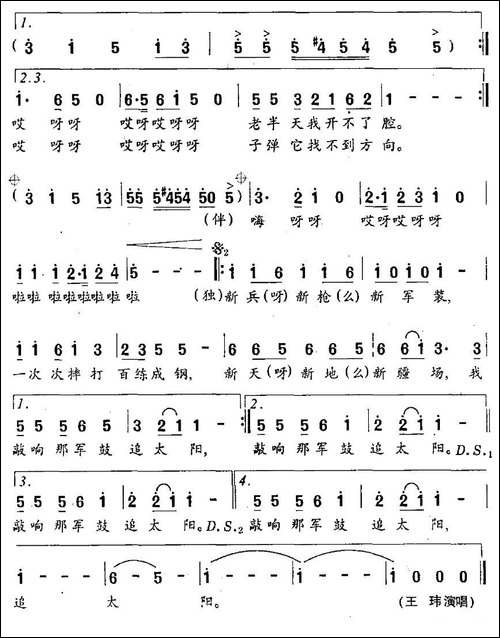 1.
( 3 1 5 1 3 | 5 5 5 #4 5 4 5 5 ) :||
2.3.
1· 6 5 0 | 6·5 6 1 5 0 | 5 5 3 2 1 6 2 | 1 - - - :||
哎 呀呀 哎呀哎呀呀 老半 天我开不了 腔。
哎 呀呀 哎呀哎呀呀 子弹 它找不到 方向。
( 3 1 5 1 3 | 5 5 5 #4 5 4 5 0 5 ) | 3· 2 1 0 | 2·1 2 3 1 0 |
(伴) 嗨 呀呀 哎呀哎呀呀
1 1 1 2·1 2 4 | 5 - - - 𝄋2 ||: 1 1 6 1 1 6 | 1 0 1 0 1 - |
啦啦 啦啦啦啦啦 啦 (独)新兵(呀)新枪(么)新 军 装,
1 1 6 1 3 | 2 3 5 5 - | 6 6 5 6 6 5 | 6 6 1 3· 3 |
一次 次摔打 百练成钢, 新天(呀)新地(么)新疆 场, 我
1. 2.
5 5 5 6 5 | 3 2 1 1 - :|| 5 5 5 6 1 | 2 2 1 1 - |
敲响 那军 鼓 追太 阳, 敲响 那军 鼓 追太 阳。D.S.1
3. 4.
5 5 5 6 1 | 2 2 1 1 - | 5 5 5 6 1 | 2 2 1 1 - |
敲响 那军 鼓 追太 阳。D.S.2 敲响 那军 鼓 追太 阳,
1 - - - | 6 - 5 - | 1 - - - | 1 - - - | 1 0 0 0 ||
追 太 阳。 (王 玮演唱)